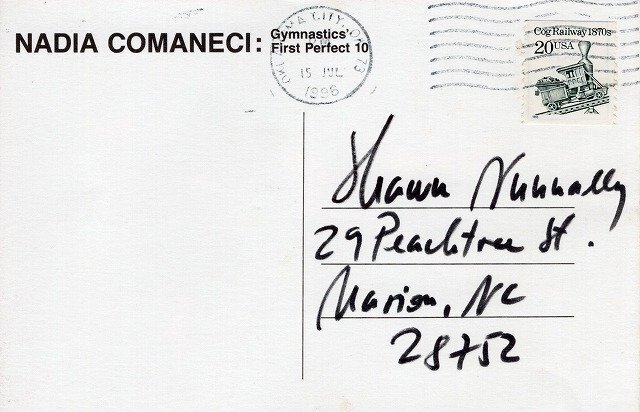 NADIA COMANECI: Gymnastics'
First Perfect 10
15 JUL
1996
Cog Railway 1870s
20 USA
Shawn Nunnally
29 Peachtree St.
Marion, NC
28752